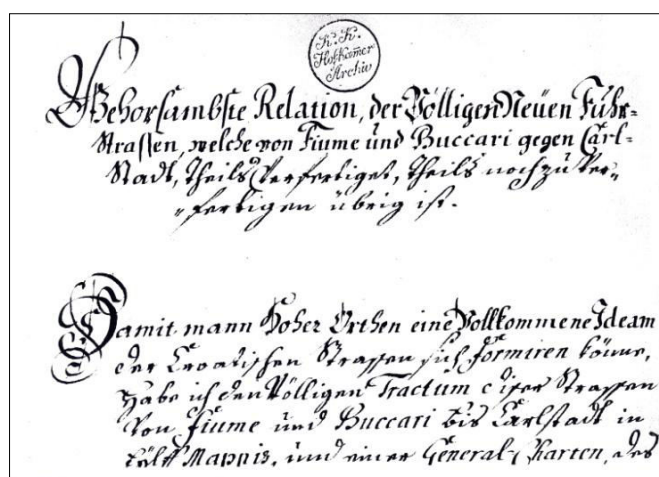 K. K.
Hofkammer
Archiv
Gehorsambste Relation, der Völligen Neuen Fuhr-
Strassen, welche von Fiume und Buccari gegen Carl-
Stadt, Theils Verfertiget, Theils noch zu Ver-
fertigen übrig ist.
Damit mann Hoher Orthen eine Vollkommene Ideam
der Croatischen Strassen sich formiren könne,
Habe ich den Völligen Tractum diser Strassen
Von Fiume und Buccari bis Carlstadt in
Mappis, und einer General-Karten, des